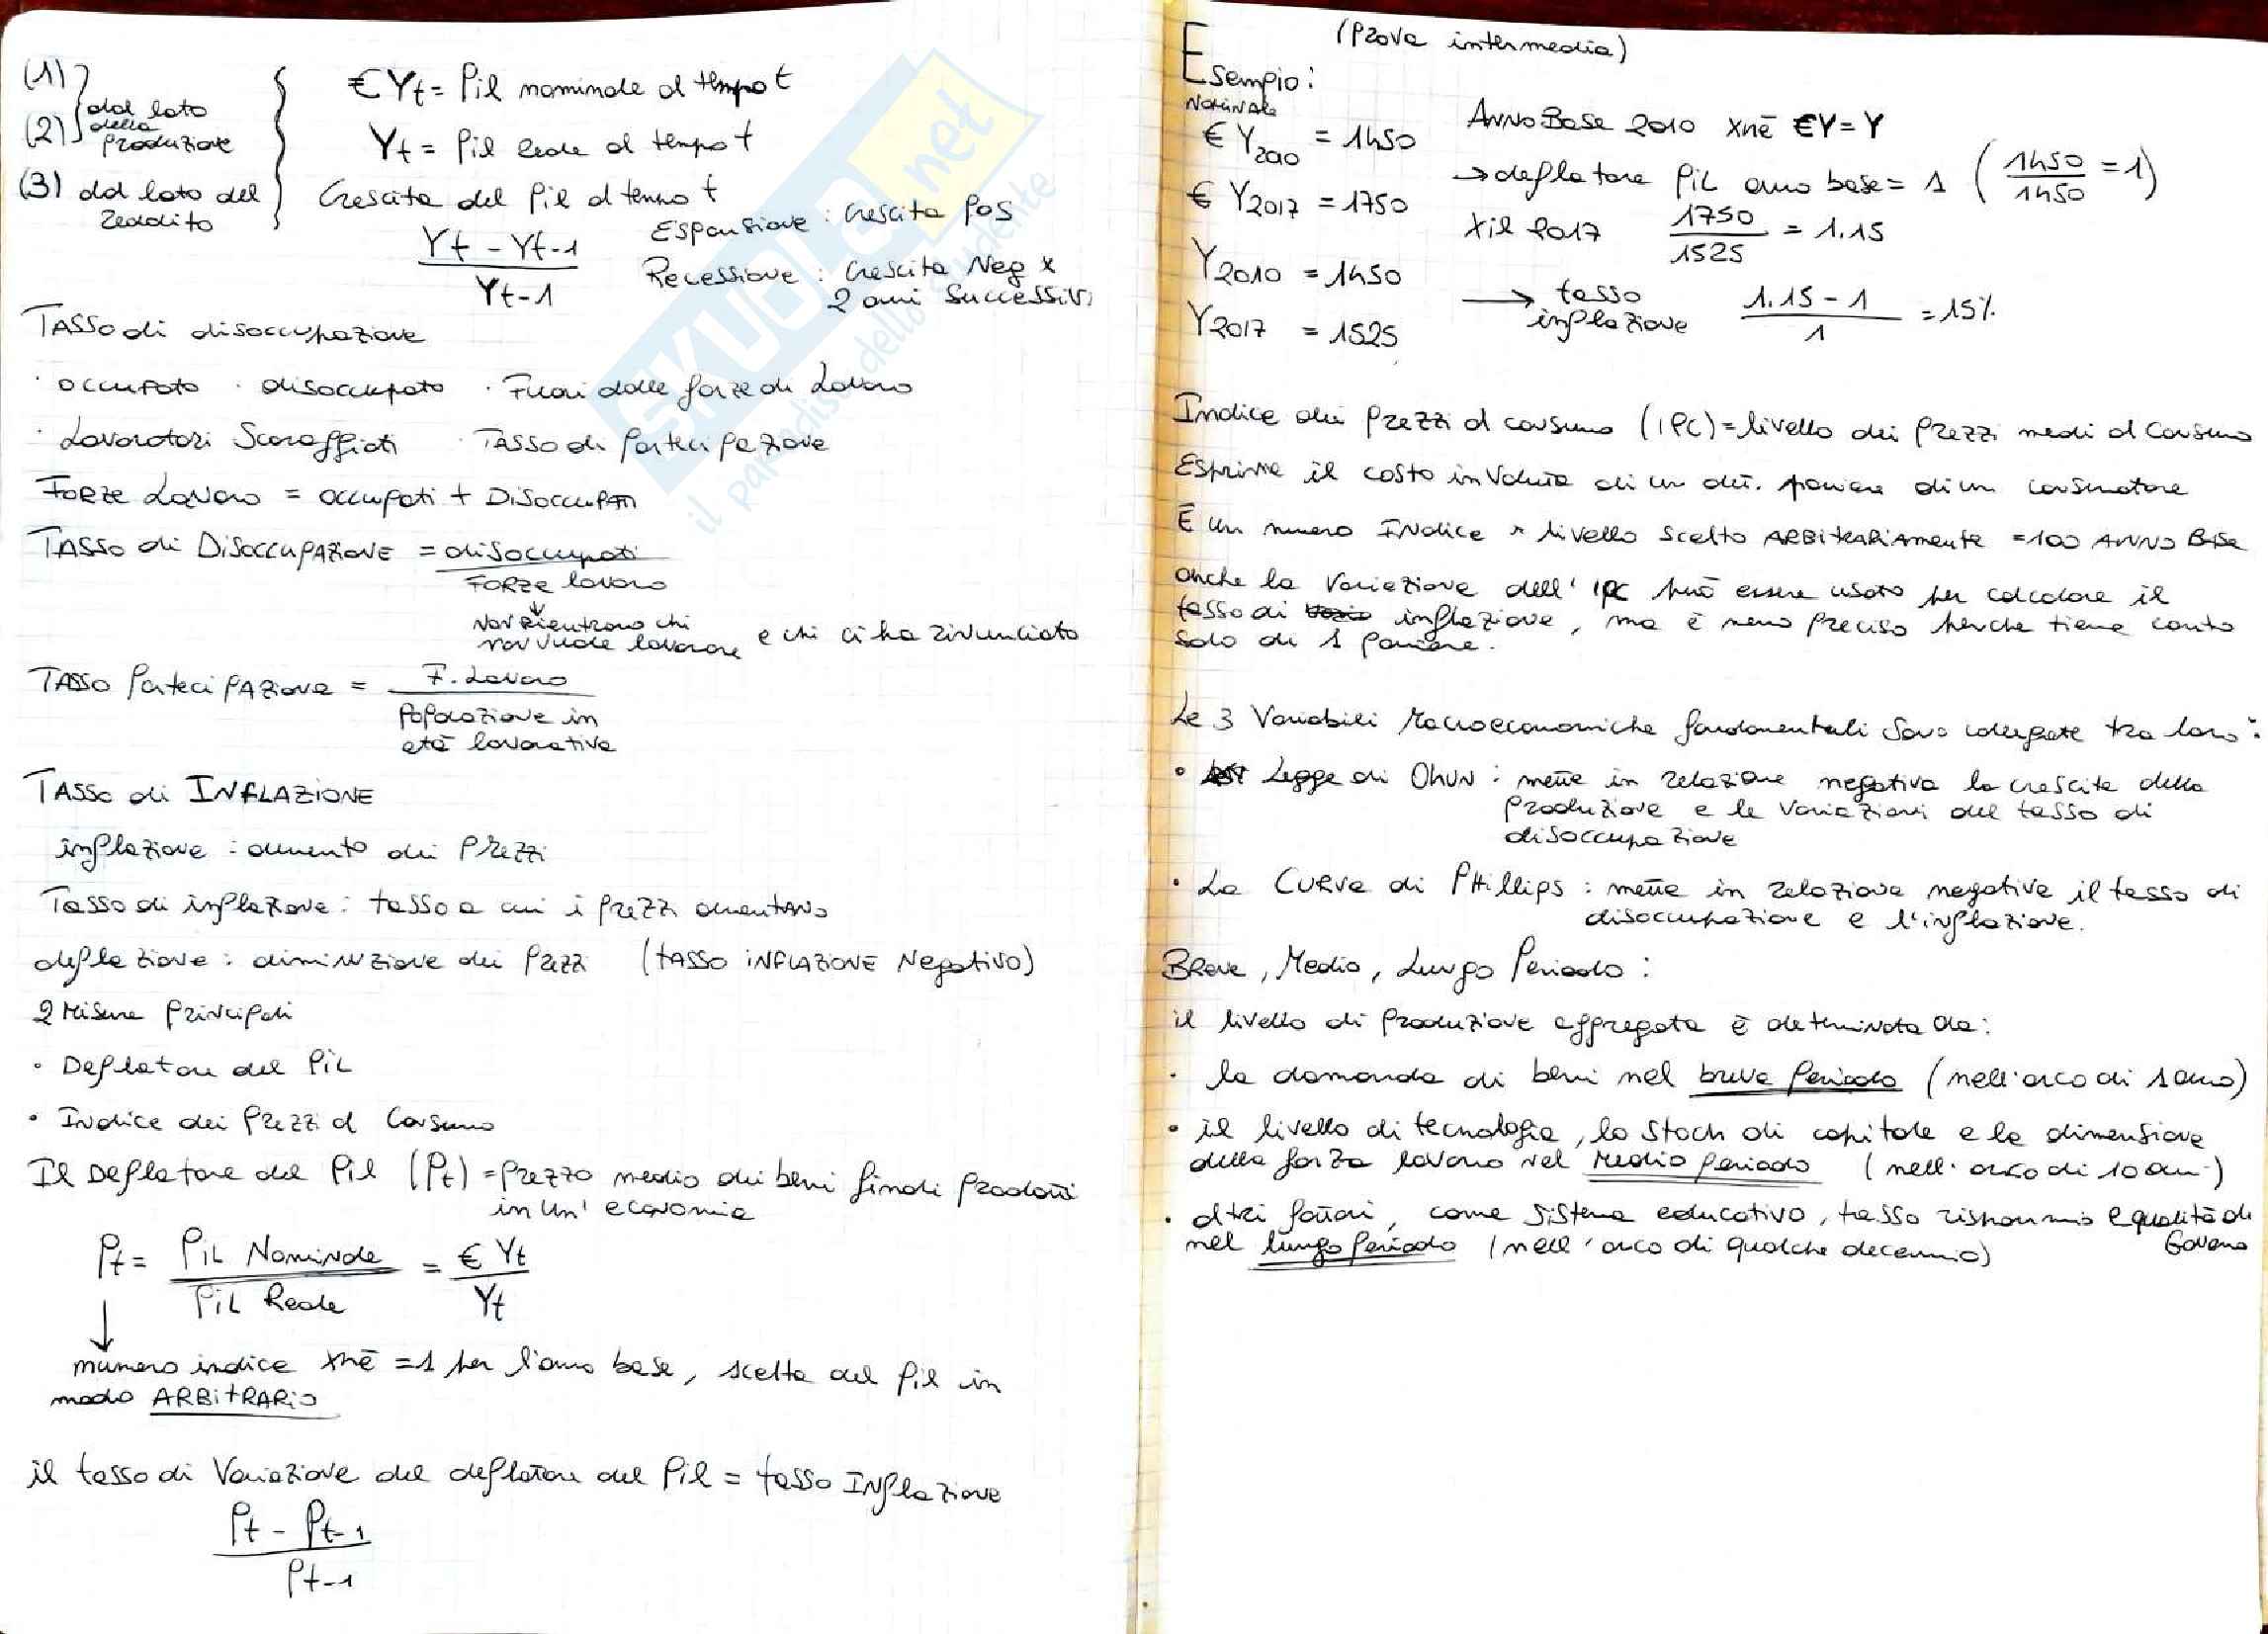 (1)
(2)
dal lato
della
produzione
(3) dal lato del
reddito
€Yt = Pil nominale al tempo t
Yt = Pil reale al tempo t
Crescita del Pil al tempo t
Yt - Yt-1
Yt-1
Espansione : crescita pos
Recessione : crescita Neg x
2 anni successivi
TASSO di disoccupazione
· occupato · disoccupato · Fuori dalle forze di Lavoro
· Lavoratori Scoraggiati · TASSO di Partecipazione
FORZE LAVORO = occupati + DISOCCUPATI
TASSO di DISOCCUPAZIONE = disoccupati
FORZE lavoro
↓
non rientrano chi
non vuole lavorare e chi ci ha rinunciato
TASSO Partecipazione = F. Lavoro
Popolazione in
età lavorativa
TASSO di INFLAZIONE
inflazione : aumento dei Prezzi
Tasso di inflazione : tasso a cui i prezzi aumentano
deflazione : diminuzione dei Prezzi (tasso INFLAZIONE Negativo)
2 Misure Principali
· Deflatore del PiL
· Indice dei Prezzi al Consumo
Il Deflatore del Pil (Pt) = prezzo medio dei beni finali prodotti
in un' economia
Pt = PIL Nominale = € Yt
PiL Reale Yt
↓
numero indice xké =1 per l'anno base, scelta del Pil in
modo ARBITRARIO
il tasso di Variazione del deflatore del Pil = tasso INflazione
Pt - Pt-1
Pt-1
(Prova intermedia)
Esempio :
NOMINALE
€ Y2010 = 1450
€ Y2017 = 1750
Y2010 = 1450
Y2017 = 1525
Anno Base 2010 xké €Y = Y
→ deflatore PiL anno base = 1 (1450/1450 = 1)
x il 2017 1750/1525 = 1.15
→ tasso
inflazione 1.15 - 1 / 1 = 15%
Indice dei prezzi al consumo (IPC) = livello dei prezzi medi al consumo
Esprime il costo in valuta di un det. paniere di un consumatore
È un numero INdice livello scelto ARBITRARIAmente =100 ANNO Base
anche la variazione dell' IPC può essere usato per calcolare il
tasso di inflazione, ma è meno preciso perché tiene conto
solo di 1 paniere.
Le 3 Variabili Macroeconomiche fondamentali sono collegate tra loro :
· Legge di Okun : mette in relazione negativa la crescita della
produzione e le variazioni del tasso di
disoccupazione
· La Curva di PHillips : mette in relazione negativa il tasso di
disoccupazione e l'inflazione.
Breve, Medio, Lungo Periodo :
il livello di produzione aggregata è determinata da :
· la domanda di beni nel breve Periodo (nell'arco di 1 anno)
· il livello di tecnologia, lo stock di capitale e la dimensione
della forza lavoro nel Medio periodo (nell'arco di 10 anni)
· altri fattori, come sistema educativo, tasso risparmio e qualità di
Governo
nel lungo Periodo (nell'arco di qualche decennio)
SKUOLA.net
il paradiso dello studente